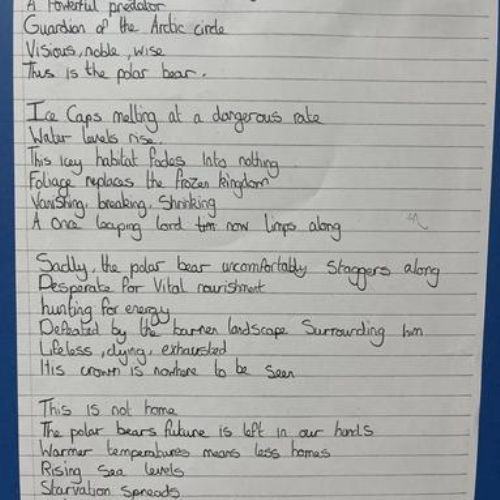 A Powerful predator
Guardian of the Arctic circle
Visious, noble, wise
Thus is the polar bear.
Ice Caps melting at a dangerous rate
Water levels rise.
This icey habitat fades into nothing
Foliage replaces the frozen kingdom
Vanishing, breaking, Shrinking
A once leaping lord now limps along
Sadly, the polar bear uncomfortably staggers along
Desperate for vital nourishment
hunting for energy
Defeated by the barren landscape surrounding him
Lifeless, dying, exhausted
His crown is nowhere to be seen
This is not home
The polar bears future is left in our hands
Warmer temperatures means less homes
Rising sea levels
Starvation spreads